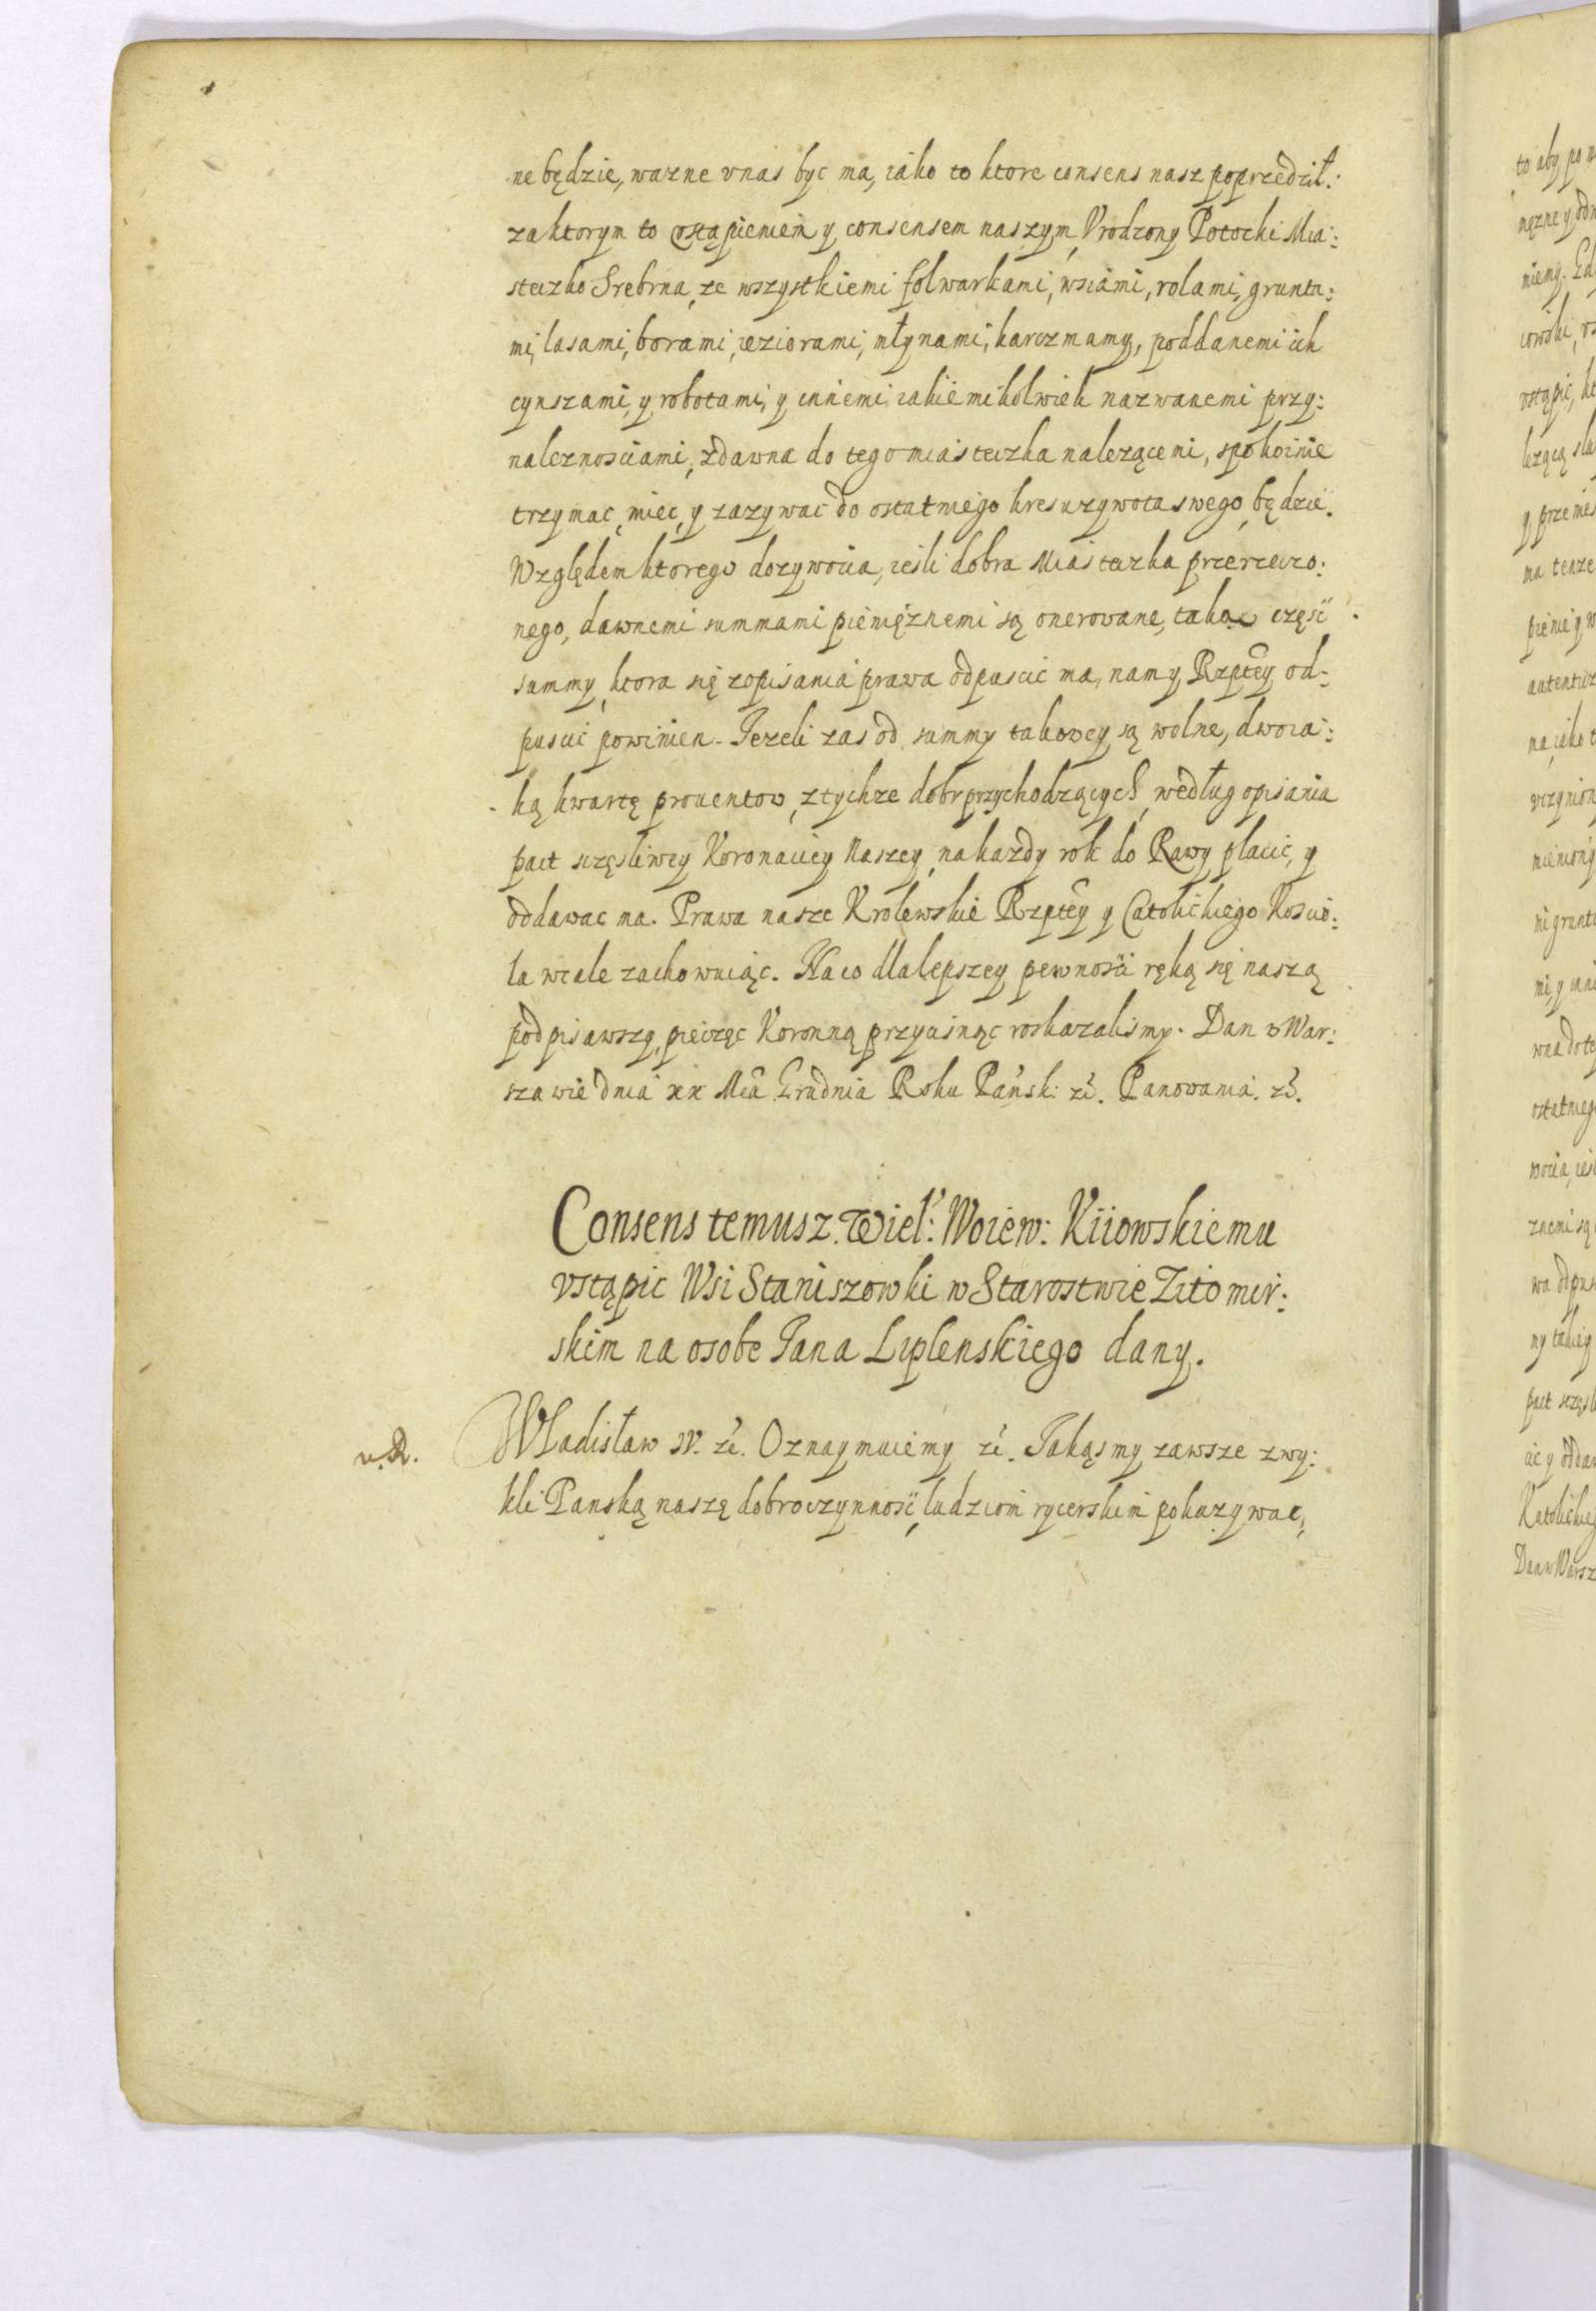 ne będzie, wazne vnas byc ma, iako to ktore consens nasz poprzedził:
za ktorym to vstąpieniem y consensem naszym, Vrodzony Potocki Mia:
steczko Srebrna, ze wszystkiemi folwarkami, wsiami, rolami, grunta:
mi, lasami, borami, ieziorami, młynami, karczmamy, poddanemi ich
cynszami, y robotami, y innemi iakiemikolwiek nazwanemi przy:
naleznosciami, zdawna do tego miasteczka nalezącemi, spokoinie
trzymac, miec, y zazywac do ostatniego kresu zywota swego będzie.
Względem ktorego dozywocia, iesli dobra Miasteczka przerzeczo:
nego, dawnemi summami pieniężnemi są onerovane, taką częsc
summy, ktora się z opisania prawa odpuscic ma, nam y Rzptey od:
puscic powinien. Jezeli zas od summy takovey są wolne, dwoia:
ką kwartę prouentow, z tychze dobr przychodzących, według opisania
pact sczęsliwey Koronaciey Naszey, na kazdy rok do Rawy placic, y
oddawac ma. Prawa nasze Krolewskie Rzptey y Catolickiego Koscio:
la wcale zachowuiąc. Na co dla lepszey pewnosci ręką się naszą
podpisawszy, pieczęc Koronną przycisnąc roskazalismy. Dan v War:
szawie dnia xx Mca Grudnia Roku Pańsk: zc. Panowania. zc.
Consens temusz Wiel: Woiew: Kiiowskiemu
vstąpic Wsi Staniszowki w Starostwie Zitomir:
skim na osobe Jana Liplenskiego dany.
Wladisław IV. zc. Oznaymuiemy zc. Jakąsmy zawsze zwy:
kli Panską naszę dobroczynnosc, ludziom rycerskim pokazywac,